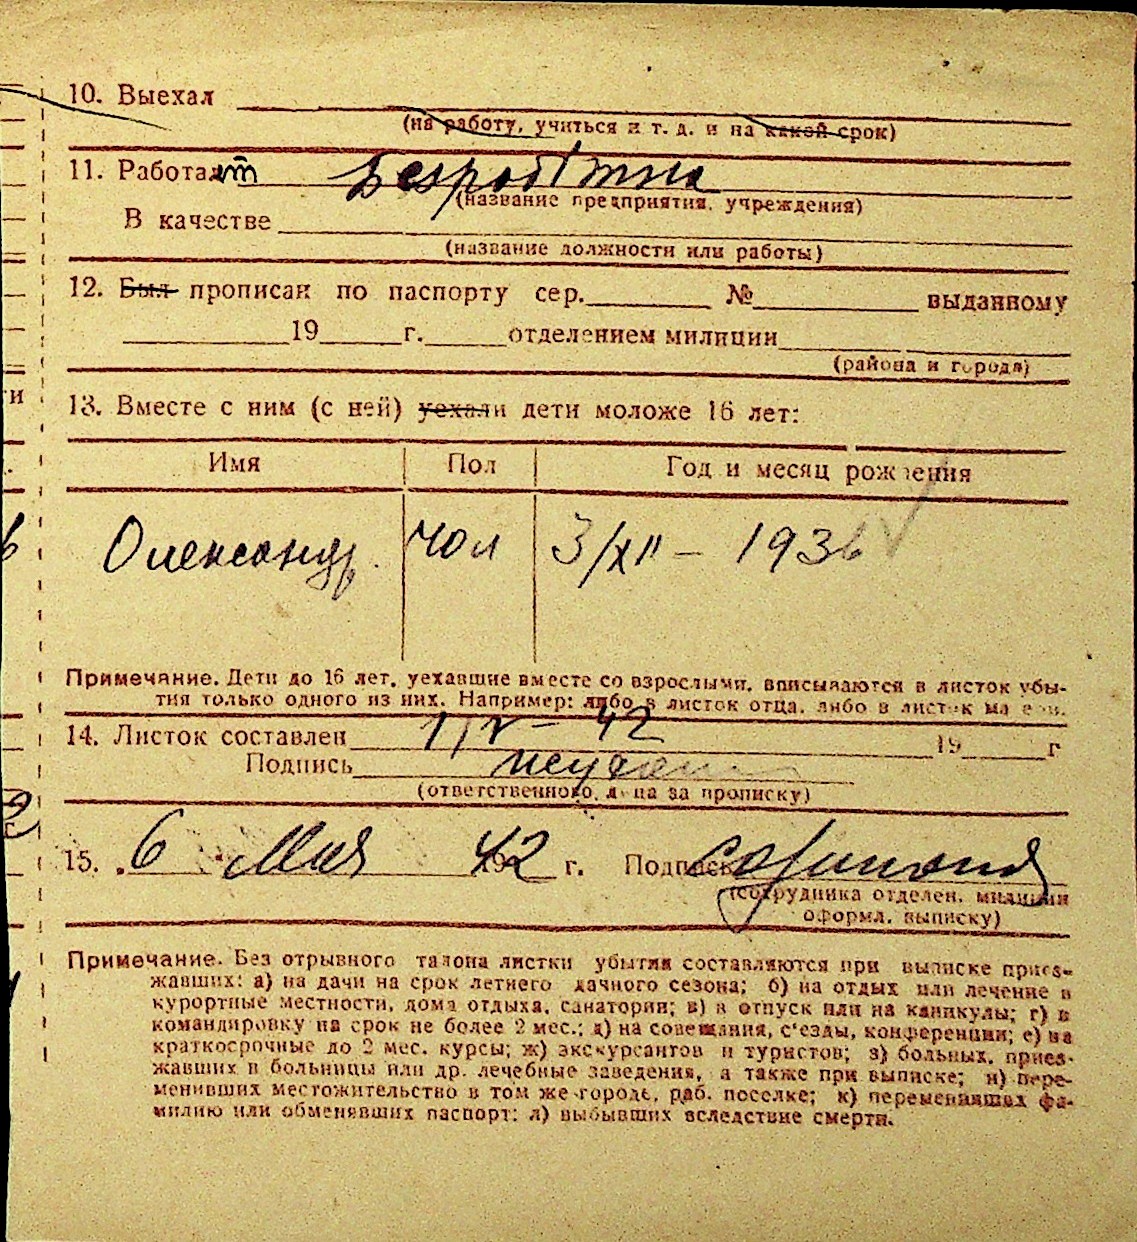 10. Выехал
(на работу, учиться и т. д. и на какой срок)
11. Работает Безробітна
(название предприятия, учреждения)
В качестве
(название должности или работы)
12. Был прописан по паспорту сер. № выданному
19 г. отделением милиции
(района и города)
13. Вместе с ним (с ней) уехали дети моложе 16 лет:
Имя Пол Год и месяц рождения
Олександр. чол 3/XII – 1936
Примечание. Дети до 16 лет, уехавшие вместе со взрослыми, вписываются в листок убы-
тия только одного из них. Например: либо в листок отца, либо в листок матери.
14. Листок составлен 1/V – 42 19 г
Подпись
(ответственного лица за прописку)
15. „6 " Мая 1942 г. Подпись
(сотрудника отделен. милиции
оформл. выписку)
Примечание. Без отрывного талона листки убытия составляются при выписке приез-
жавших: а) на дачи на срок летнего дачного сезона; б) на отдых или лечение в
курортные местности, дома отдыха, санатории; в) в отпуск или на каникулы; г) в
командировку на срок не более 2 мес.; д) на совещания, с'езды, конференции; е) на
краткосрочные до 2 мес. курсы; ж) экскурсантов и туристов; з) больных, приез-
жавших в больницы или др. лечебные заведения, а также при выписке; и) пере-
менивших местожительство в том же городе, раб. поселке; к) переменивших фа-
милию или обменявших паспорт; л) выбывших вследствие смерти.